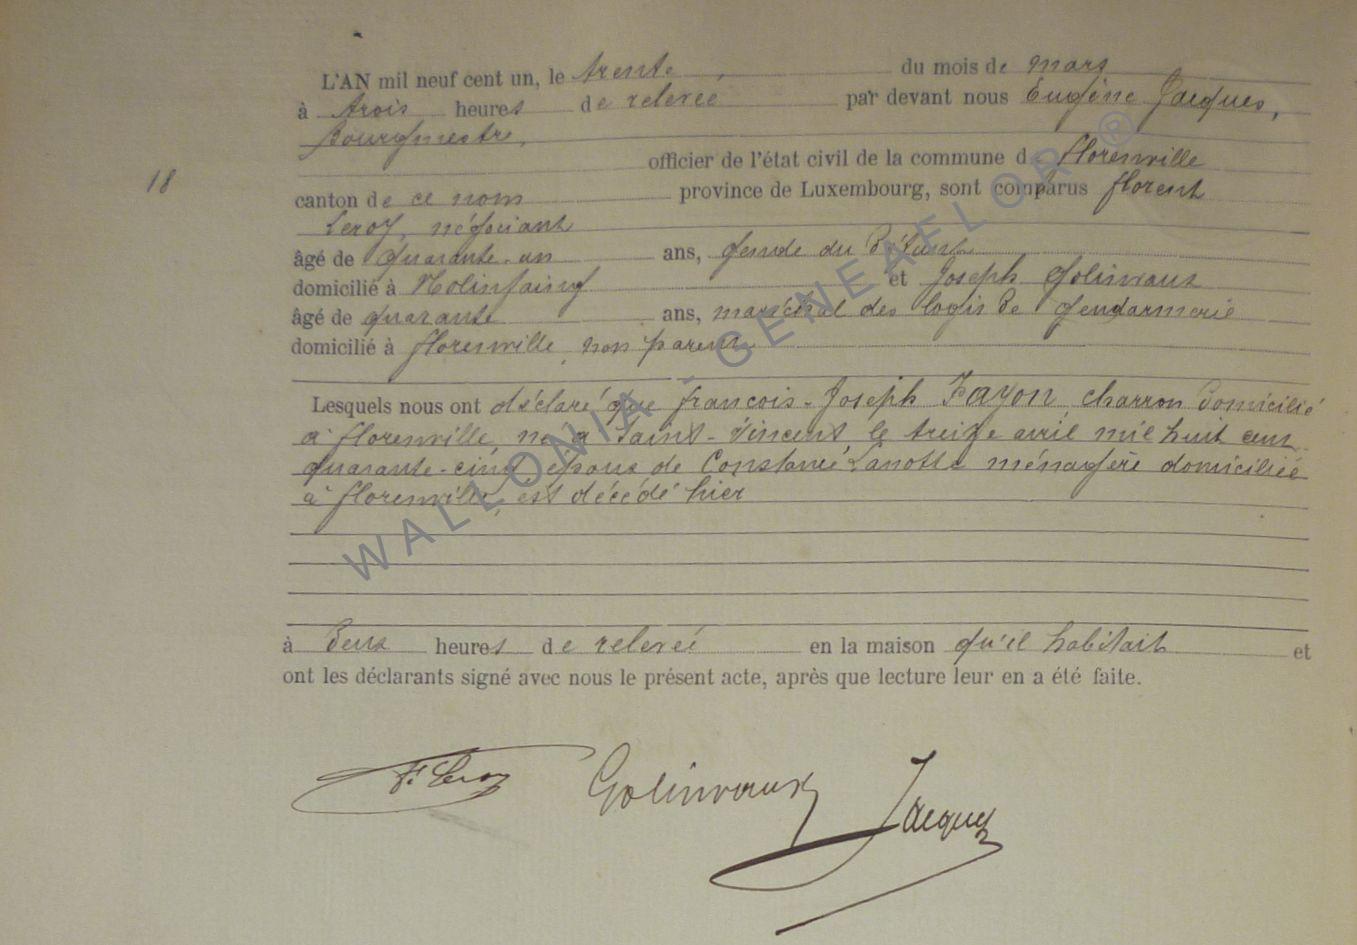 L'AN mil neuf cent un, le trente du mois de mars
à trois heures de relevée par devant nous Eugène Jacques,
Bourgmestre,
officier de l'état civil de la commune de Florenville
18
canton de ce nom province de Luxembourg, sont comparus Florent
Leroy, négociant
âgé de quarante-un ans, gendre du Défunt
domicilié à Molinfaing et Joseph Golinvaux
âgé de quarante ans, maréchal des logis de gendarmerie
domicilié à Florenville, non parent
Lesquels nous ont déclaré que François-Joseph Fayon, charron domicilié
à Florenville, né à Saint-Vincent, le treize avril mil huit cent
quarante-cinq, époux de Constance Lanotte ménagère domiciliée
à Florenville, est décédé hier
à Deux heures de relevée en la maison qu'il habitait et
ont les déclarants signé avec nous le présent acte, après que lecture leur en a été faite.
F. Leroy Golinvaux Jacques
WALLONIA - GENEAFLOR ®